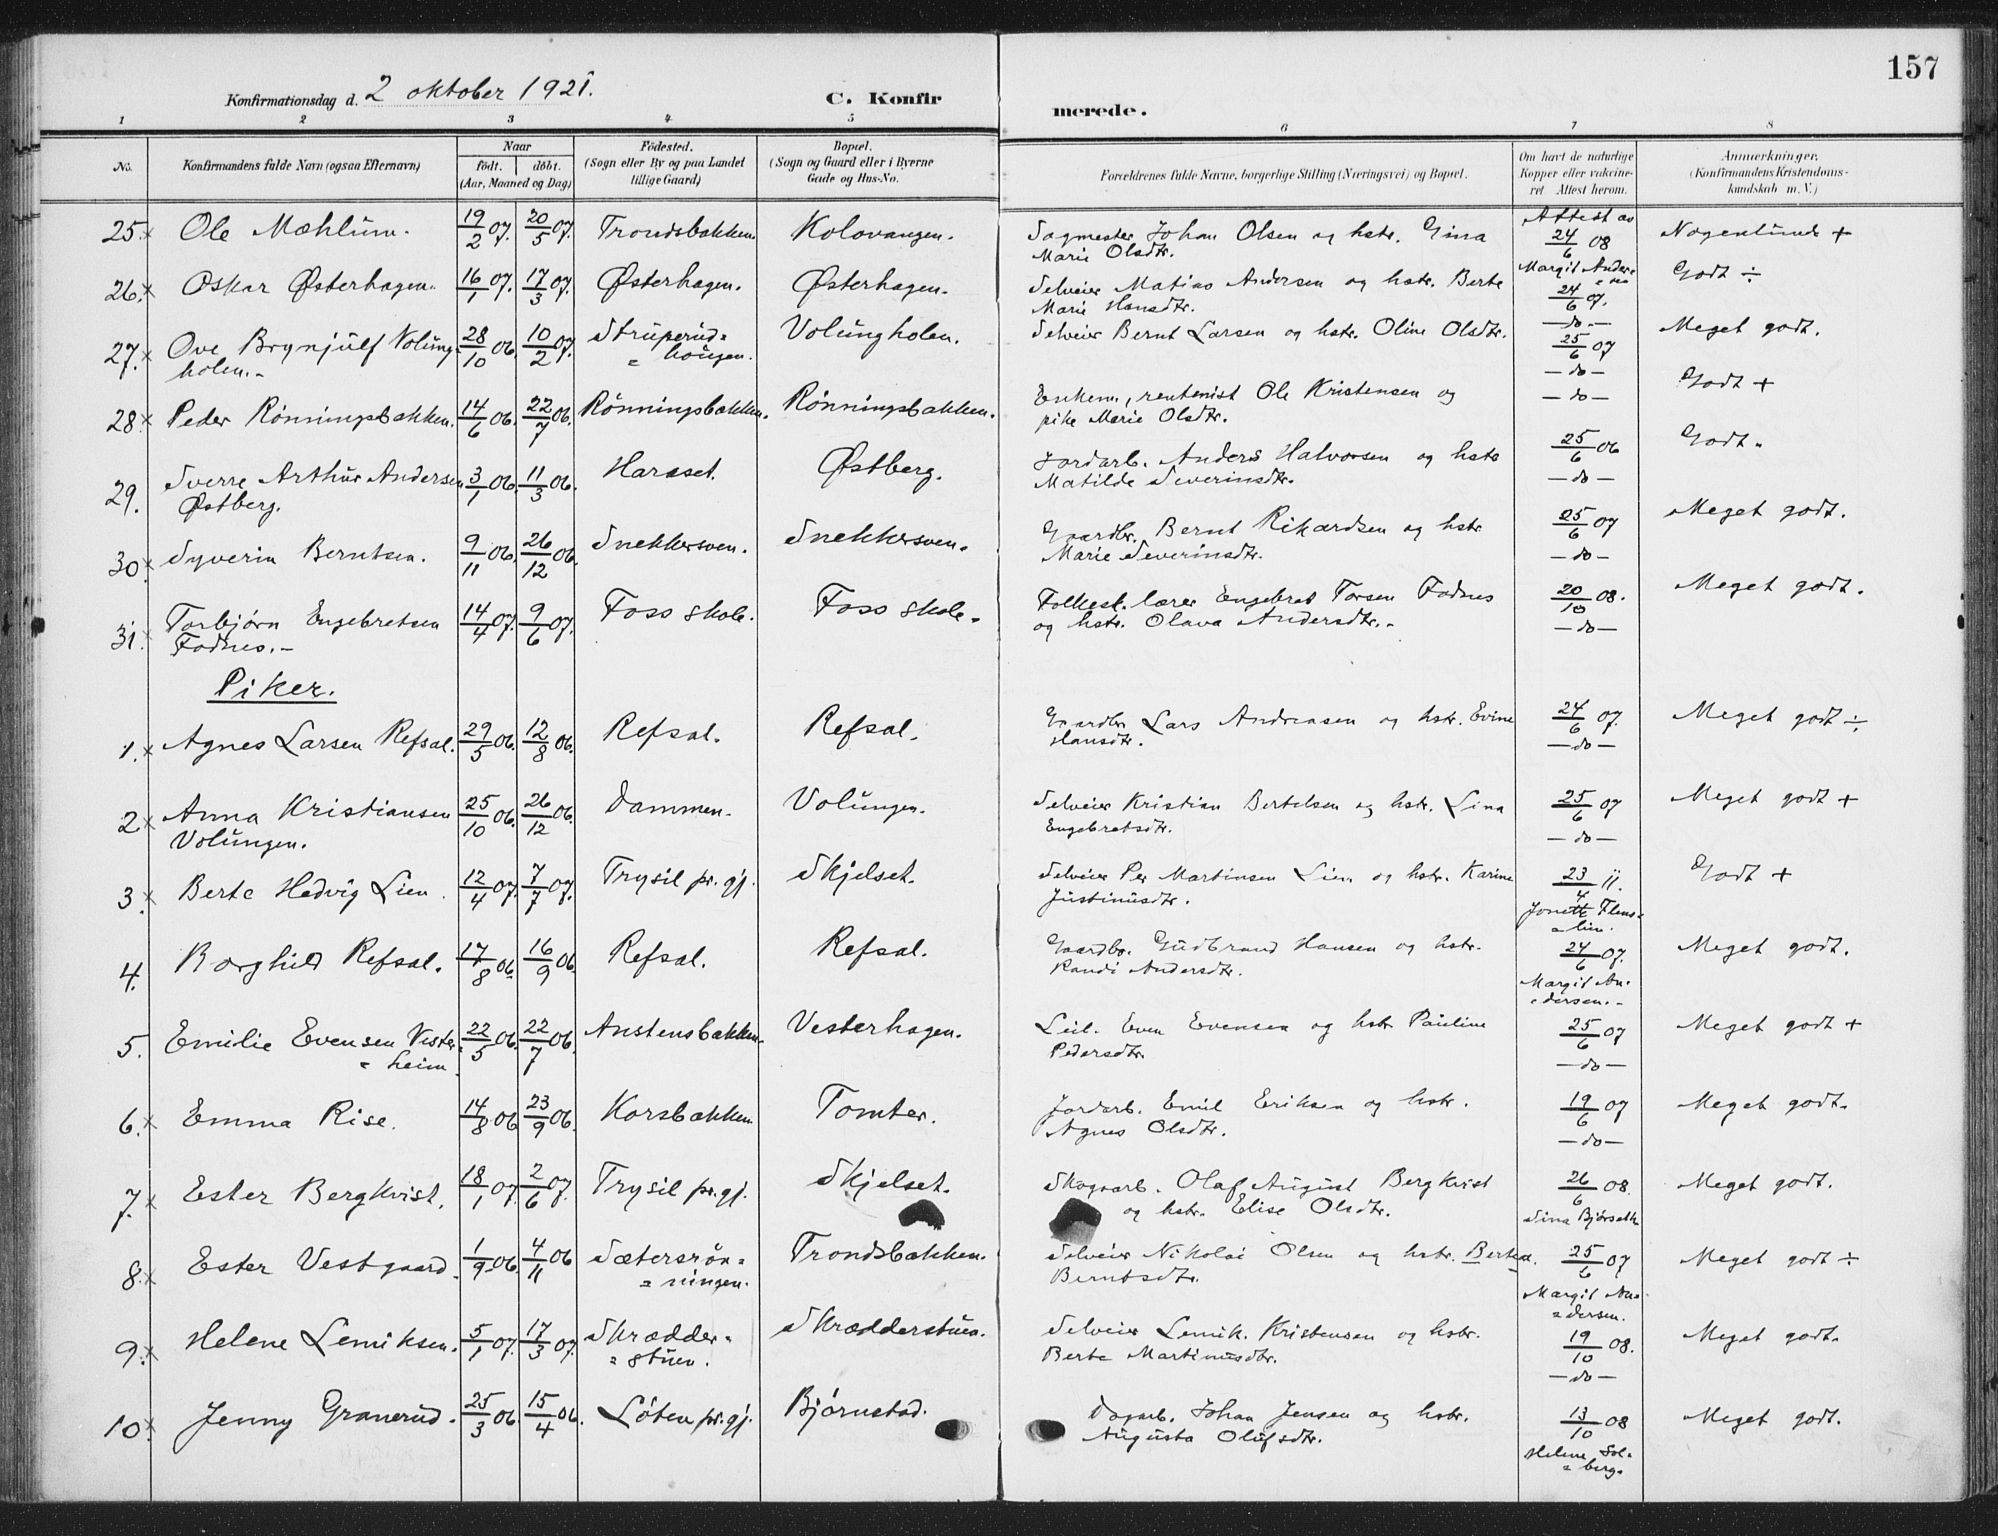 157
Konfirmationsdag d. 2 oktober 1921.
C. Konfirmerede.
1 2 3 4 5 6 7 8
No. Konfirmandens fulde Navn (ogsaa Efternavn) Naar født. døbt. (Aar, Maaned og Dag) Fødested. (Sogn eller By og paa Landet tillige Gaard) Bopæl. (Sogn og Gaard eller i Byerne Gade og Hus-No. Forældrenes fulde Navne, borgerlige Stilling (Næringsvei) og Bopæl. Om havt de naturlige Kopper eller vaccineret Attest herom. Anmærkninger. (Konfirmandens Kristendomskundskab m. V.)
25. x Ole Mæhlum. 19/2 07. 20/5 07. Trondsbakken. Kolovangen. Sagmester Johan Olsen og hstr. Gina Marie Olsdtr. Attest av 24/6 08 Margit Andersen Nogenlunde +
26. x Oskar Østerhagen. 16/1 07. 17/3 07. Østerhagen. Østerhagen. Selveier Matias Andersen og hstr. Berte Marie Hansdtr. 24/6 07. — do. — Godt ÷
27. x Ove Brynjulf Volung= holen. 28/10 06. 10/2 07. Struperud= = haugen. Volungholen. Selveier Bernt Larsen og hstr. Oline Olsdtr. 25/6 07 — do — Meget godt.
28. x Peder Rönningsbakken. 14/6 06. 22/7 06. Rönningsbakken. Rönningsbakken. Enkem., rentenist Ole Kristensen og pike Marie Olsdtr. — do — Godt +
29. Sverre Arthur Andersen Østberg. 3/1 06. 11/3 06. Haraset. Østberg. Jordarb. Anders Halvorsen og hstr Matilde Severinsdtr. 25/6 06 — do — Godt.
30. Syverin Berntsen. 9/11 06. 26/12 06. Snekkersven. Snekkersven. Gaardbr. Bernt Rikardsen og hstr Marie Severinsdtr. 25/6 07 — do — Meget godt.
31. Torbjørn Engebretsen Fodnes. 14/4 07. 9/6 07. Foss skole. Foss skole. Folkesk. lærer Engebret Torsen Fodnes og hstr. Olava Andersdtr. 20/10 08. — do — Meget godt.
Piker.
1. x Agnes Larsen Refsal. 29/5 06. 12/8 06. Refsal. Refsal. Gaardbr Lars Andreasen og hstr. Evine Hansdtr. 24/6 07. — do — Meget godt ÷
2 x Anna Kristiansen Volungen. 25/10 06. 26/12 06. Dammen. Volungen. Selveier Kristian Bertelsen og hstr. Lina Engebretsdtr. 25/6 07 — do — Meget godt +
3. x Berte Hedvig Lien. 12/4 07. 7/7 07. Trysil pr.gj. Skjelset. Selveier Per Martinsen Lien og hstr. Karine Justinusdtr. 23/4 11. Godt +
4. Borghild Refsal. 17/8 06. 16/9 06. Refsal. Refsal. Gaardbr. Gudbrand Hansen og hstr. Randi Andersdtr. 24/6 07. Margit An= =dersen. Meget godt.
5. Emilie Evensen Vester = heim. 22/5 06. 22/7 06. Anstensbakken. Vesterhagen. Leil. Even Evensen og hstr Pauline Pedersdtr. 25/6 07 — do — Meget godt +
6. x Emma Rise. 14/8 06 23/9 06. Korsbakken Tomter. Jordarb. Emil Eriksen og hstr. Agnes Olsdtr. 19/6 07 — do — Meget godt.
7. x Ester Bergkvist. 18/1 07. 2/6 07. Trysil pr.gj. Skjelset. Skogsarb. Olaf August Bergkvist og hstr. Elise Olsdtr. 26/6 08. Sina Bjørseth Meget godt.
8. x Ester Vestgaard. 1/9 06. 4/11 06 Sætersrön= = ningen. Trondsbakken. Selveier Nikolai Olsen og hstr. Bertea. Berntsdtr. 25/6 07 Margit An= =dersen. Meget godt ÷
9. x Helene Lemiksen. 5/1 07. 17/3 07. Skrædder= = stuen. Skrædderstuen. Selveier Lemik. Kristensen og hstr. Berte Martinusdtr. 19/10 08. — do — Meget godt.
10. x Jenny Granerud. 25/3 06. 15/4 06. Löten pr.gj. Bjørnstad. Dagarb. Johan Jensen og hstr. Augusta Olufsdtr. 13/10 08 Helene Sol= = berg. Meget godt.